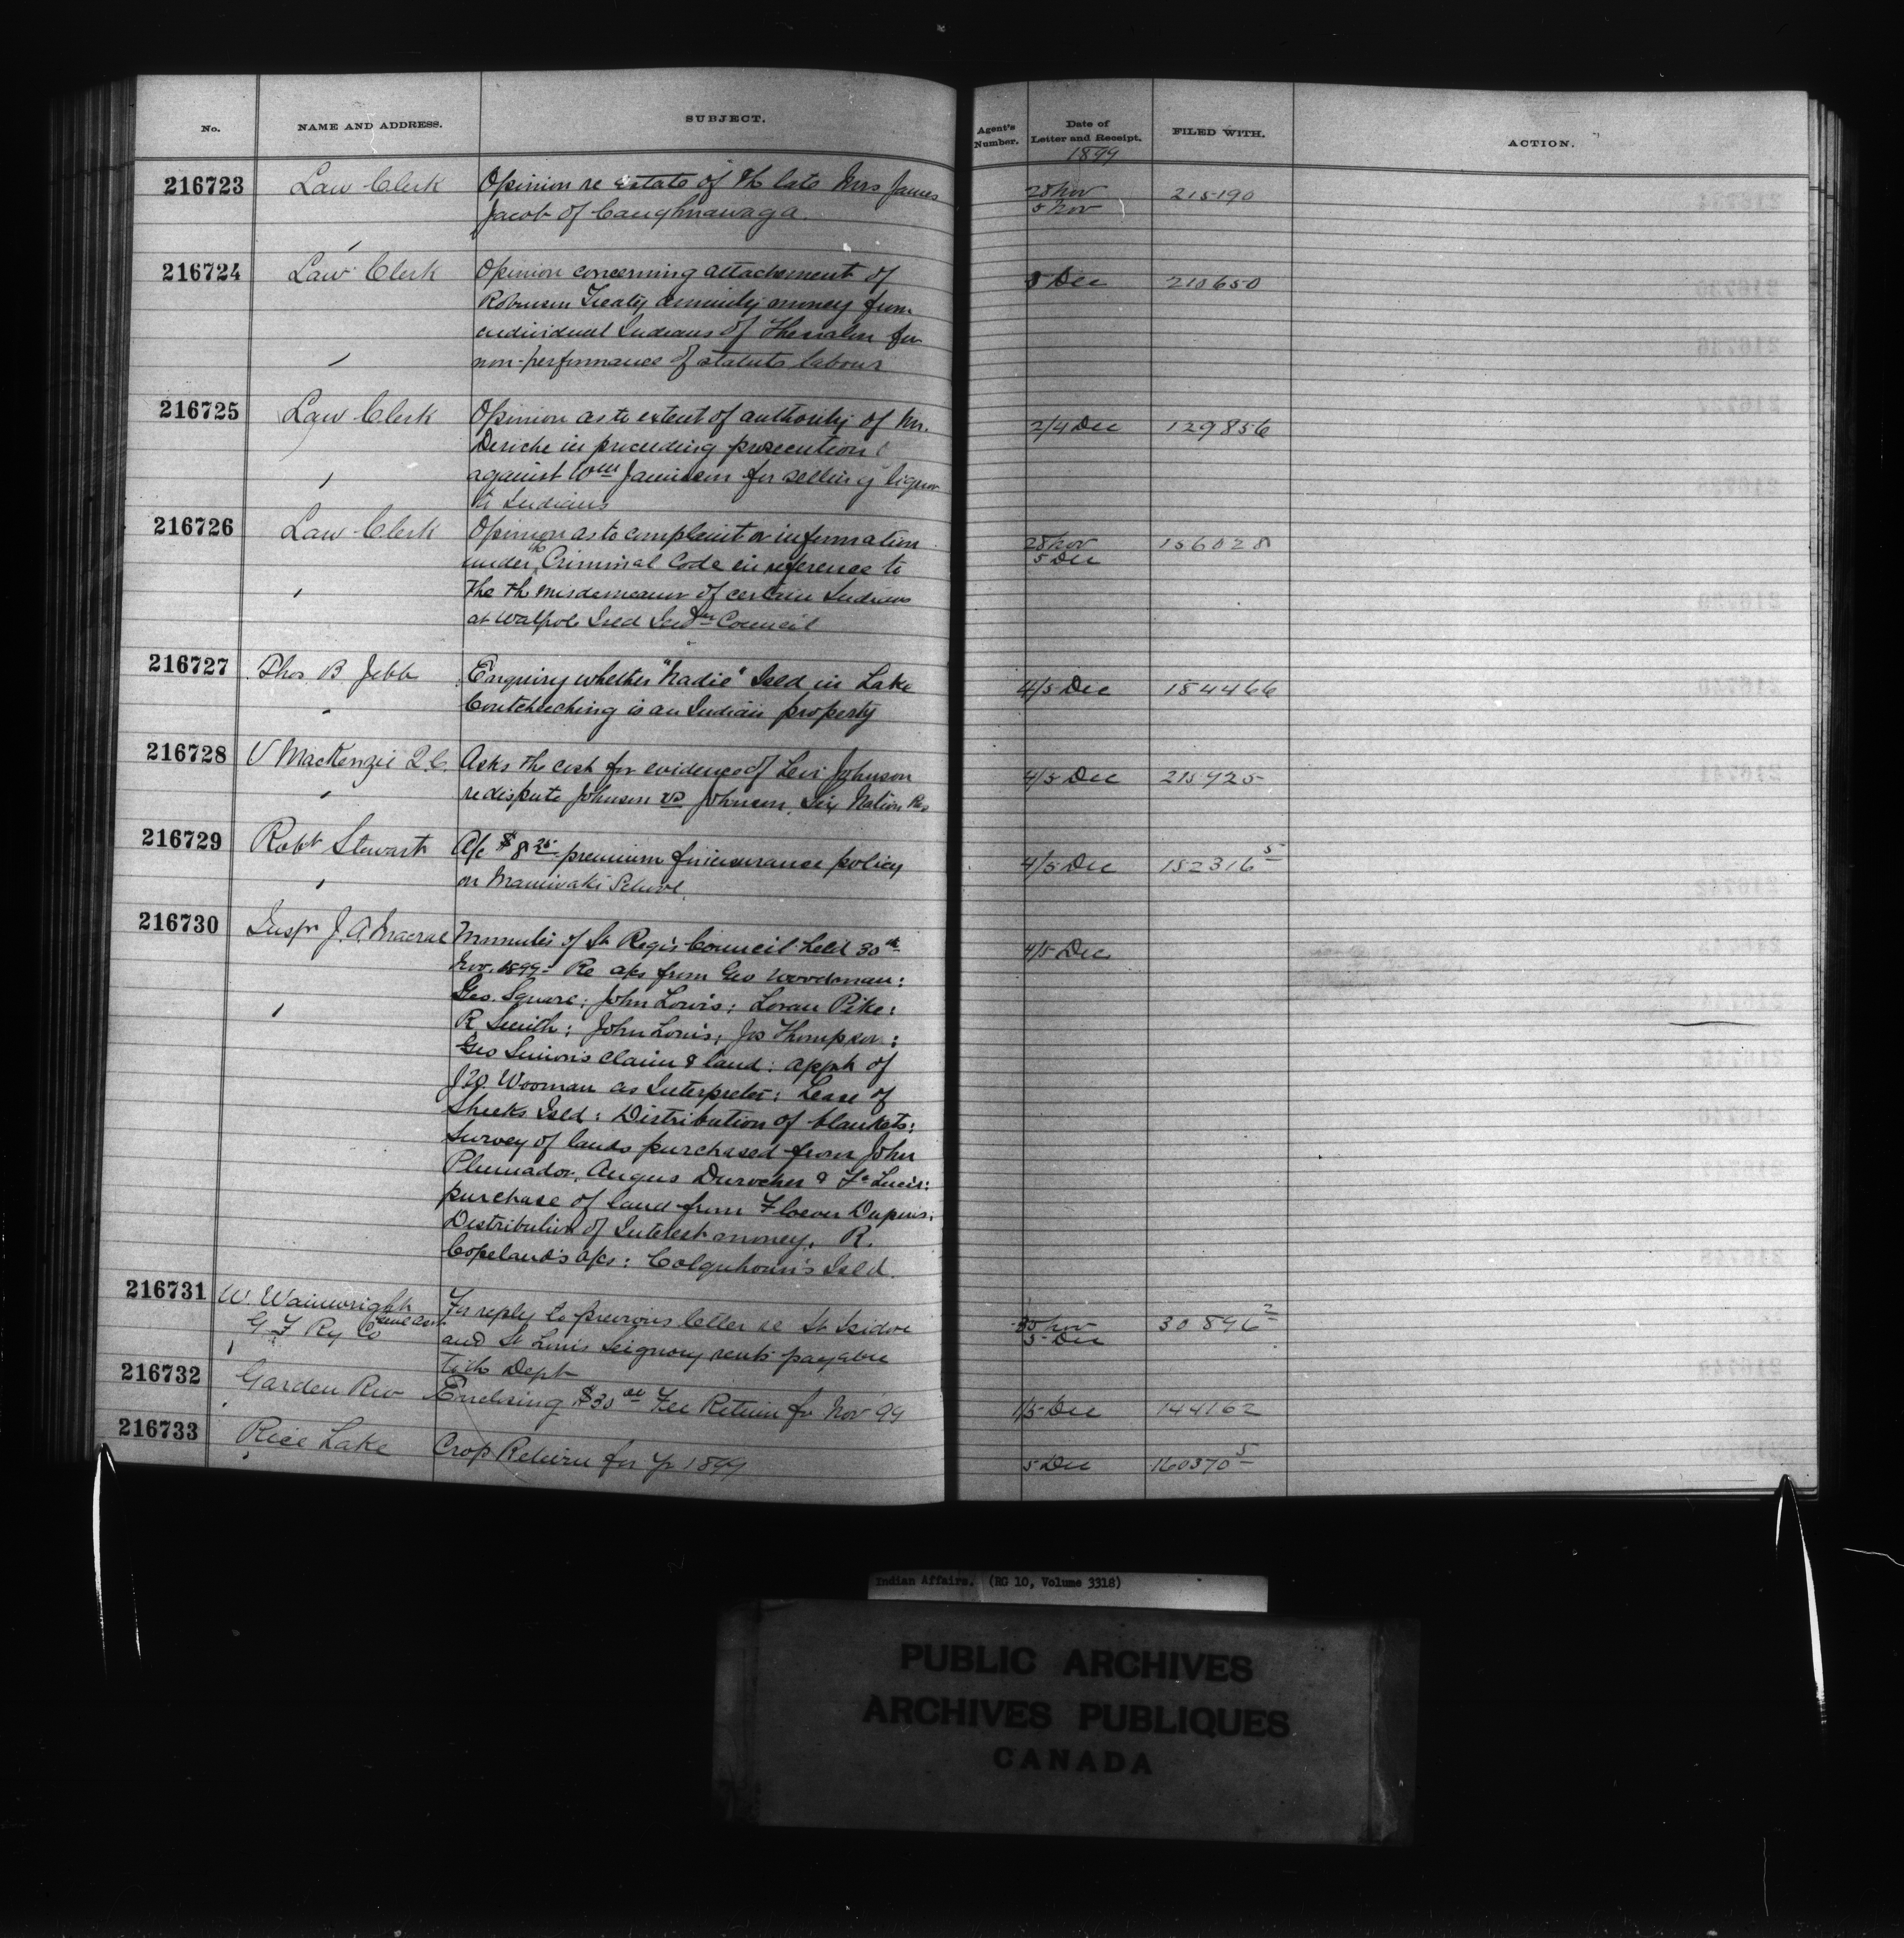 No. NAME AND ADDRESS. SUBJECT. Agent's Number. Date of Letter and Receipt. FILED WITH. ACTION.
1899
216723 Law Clerk Opinion re estate of th late Mrs James 28 Nov 215190
Jacob of Caughnawaga. 5 Nov
216724 Law Clerk Opinion concerning attachment of 5 Dec 210650
Robinson Treaty annuity money from
individual Indians of Thessalon for
non-performance of statute labour
216725 Law Clerk Opinion as to extent of authority of Mr. 2/4 Dec 129856
in proceeding prosecution
against Wm Jamieson for selling liquor
to Indians
216726 Law Clerk Opinion as to complaint or information 28 Nov 156028
under the Criminal Code in reference to 5 Dec
the th misdemeanor of certain Indians
at Walpole Isld Council
216727 Thos B Jebb Enquiry whether Isld in Lake 4/5 Dec 184466
Coutchiching is an Indian property
216728 V MacKenzie Q.C. Asks the cost for evidence of Levi Johnson 4/5 Dec 215925
re dispute Johnson vs Johnson, Six Nation Res
216729 Robt Stewart A/c $8 25 premium insurance policy 4/5 Dec 182316 5
on Maniwaki School
216730 Inspr J. A. Macrae Minutes of St Regis Council held 30th 4/5 Dec
Nov. 1899 - Re a/cs from Geo Woodman:
Geo. Square; John Lewis; Loran Pike;
R Smith; John Louis; Jos Thompson:
Geo Simon's claim & land: appt of
J W. Wooman as Interpreter: Lease of
Sheeks Isld: Distribution of blankets:
Survey of lands purchased from John
Plumador, Angus Durocher &
purchase of land from Dupuis:
Distribution of Interest money, R.
Copeland's a/cs: Colquhoun's Isld.
216731 W. Wainwright For reply to previous letter re St Isidore 30 Nov 30896 2
G T Ry Co and St Louis Seignory rents payable 5 Dec
to th Dept
216732 Garden Riv Enclosing $30 00 Fee Return for Nov 99 1/5 Dec 144162
216733 Rice Lake Crop Return for Yr 1899 5 Dec 160370 5
Indian Affairs. (RG 10, Volume 3318)
PUBLIC ARCHIVES
ARCHIVES PUBLIQUES
CANADA